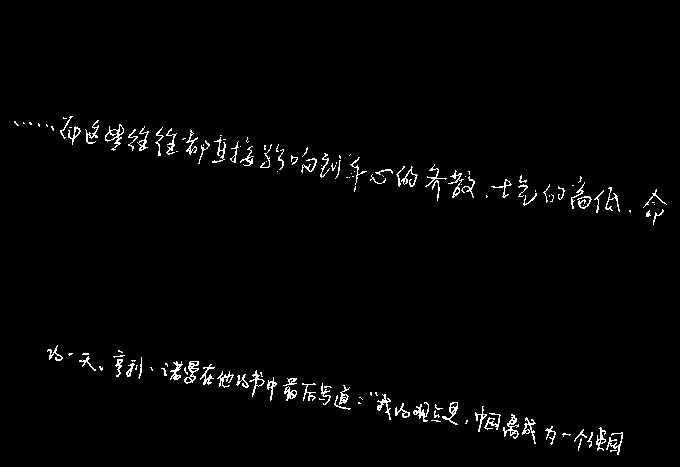 ……而这些往往都直接影响到军心的齐散、士气的高低、命
的一天。亨利·诺曼在他的书中最后写道：“我的观点是，中国离成为一个强国